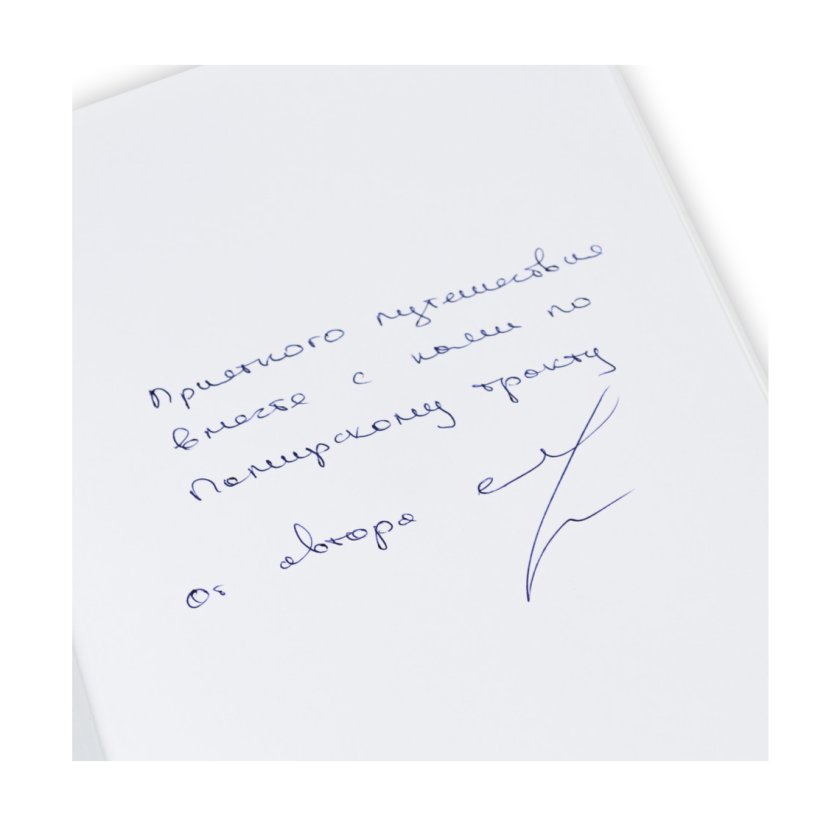 Приятного путешествия
вместе с нами по
Памирскому тракту
от автора